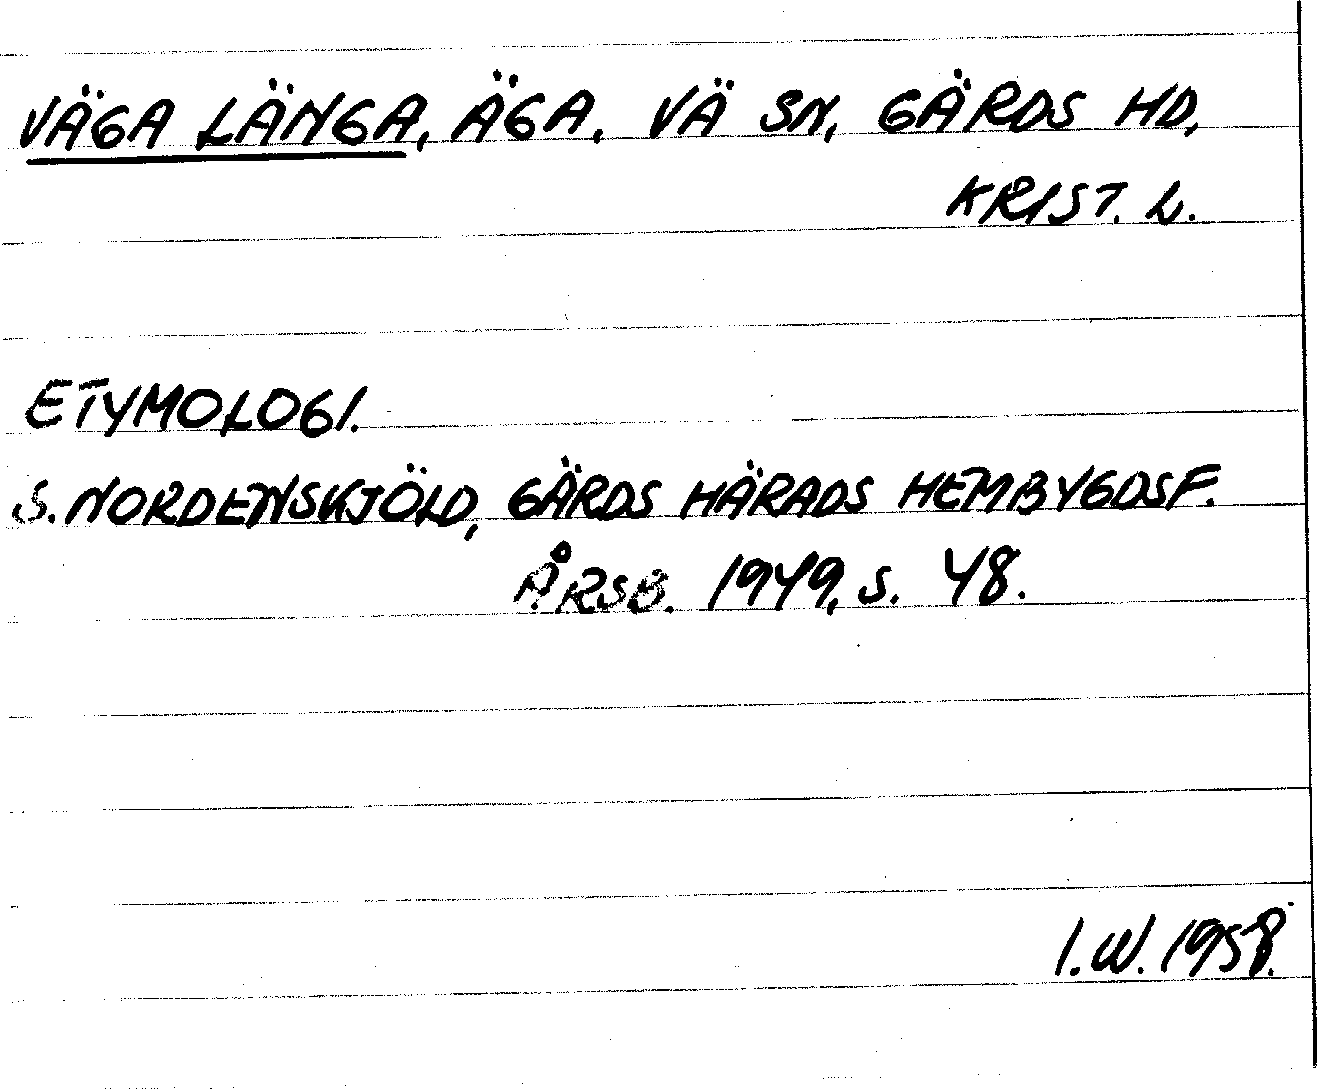 VÄGA LÄNGA, ÄGA. VÄ SN, GÄRDS HD,
KRIST. L.
ETYMOLOGI.
S. NORDENSKJÖLD, GÄRDS HÄRADS HEMBYGDSF.
ÅRSB. 1949, S. 48.
I.W. 1958.